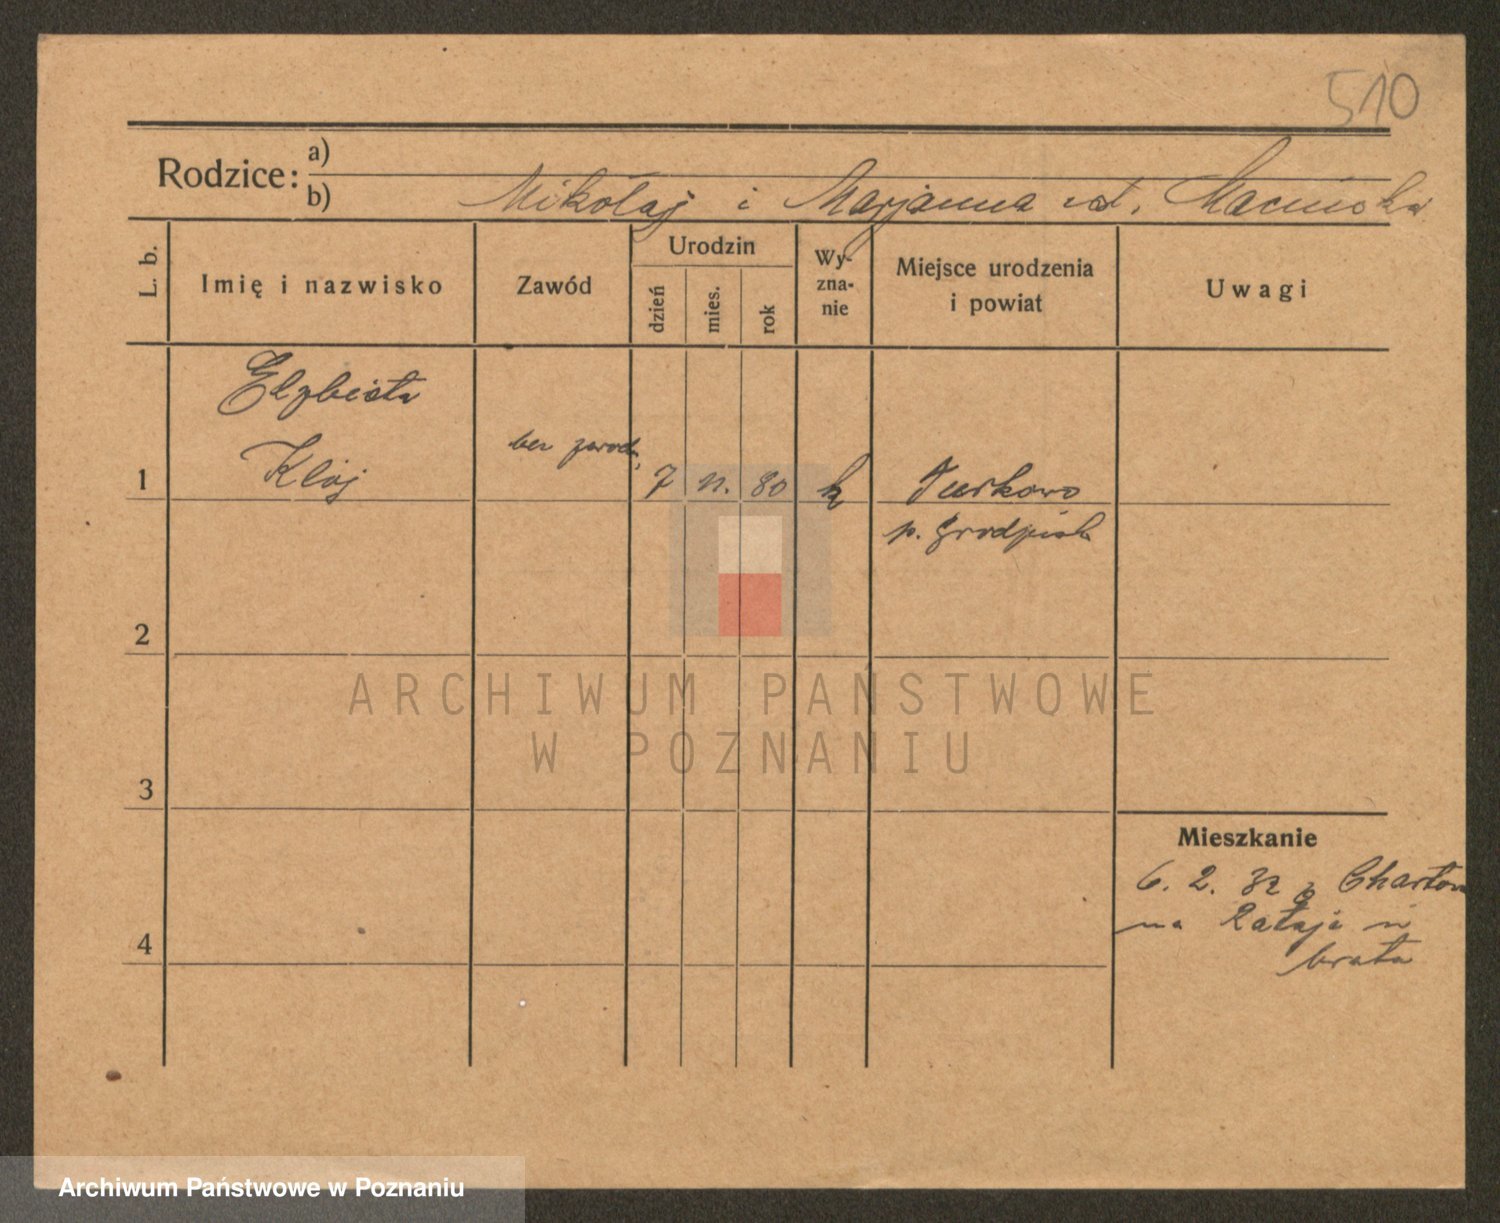 510
Rodzice:
a)
b) Mikołaj i Marjanna
L. b.
Imię i nazwisko
Zawód
Urodzin
dzień
mies.
rok
Wy-
zna-
nie
Miejsce urodzenia
i powiat
Uwagi
Elzbieta
1 Klój bez zawod. 7 11. 80 k Turkowo
p. Grodzisk
2
3
4
Mieszkanie
6. 2. 32 z Chartow
na Rataje
brata
ARCHIWUM PAŃSTWOWE
W POZNANIU
Archiwum Państwowe w Poznaniu